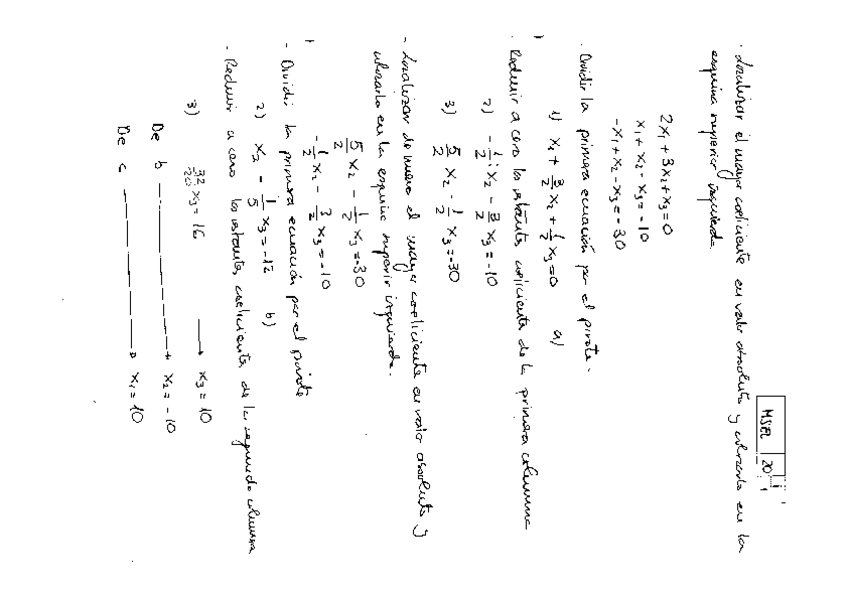 MSEL 20
· Localizar el mayor coeficiente en valor absoluto y colocarlo en la
esquina superior izquierda
2x₁ + 3x₂ + x₃ = 0
x₁ + x₂ - x₃ = -10
-x₁ + x₂ - x₃ = -30
· Dividir la primera ecuación por el pivote.
1) x₁ + 3/2 x₂ + 1/2 x₃ = 0 a)
· Reducir a cero los restantes coeficientes de la primera columna
2) -1/2 x₂ - 3/2 x₃ = -10
3) 5/2 x₂ - 1/2 x₃ = -30
- Localizar de nuevo el mayor coeficiente en valor absoluto y
ubicarlo en la esquina superior izquierda.
5/2 x₂ - 1/2 x₃ = -30
-1/2 x₂ - 3/2 x₃ = -10
- Dividir la primera ecuación por el pivote
2) x₂ - 1/5 x₃ = -12 b)
· Reducir a cero los restantes coeficientes de la segunda columna
3) 32/20 x₃ = 16 → x₃ = 10
De b → x₂ = -10
De c → x₁ = 10